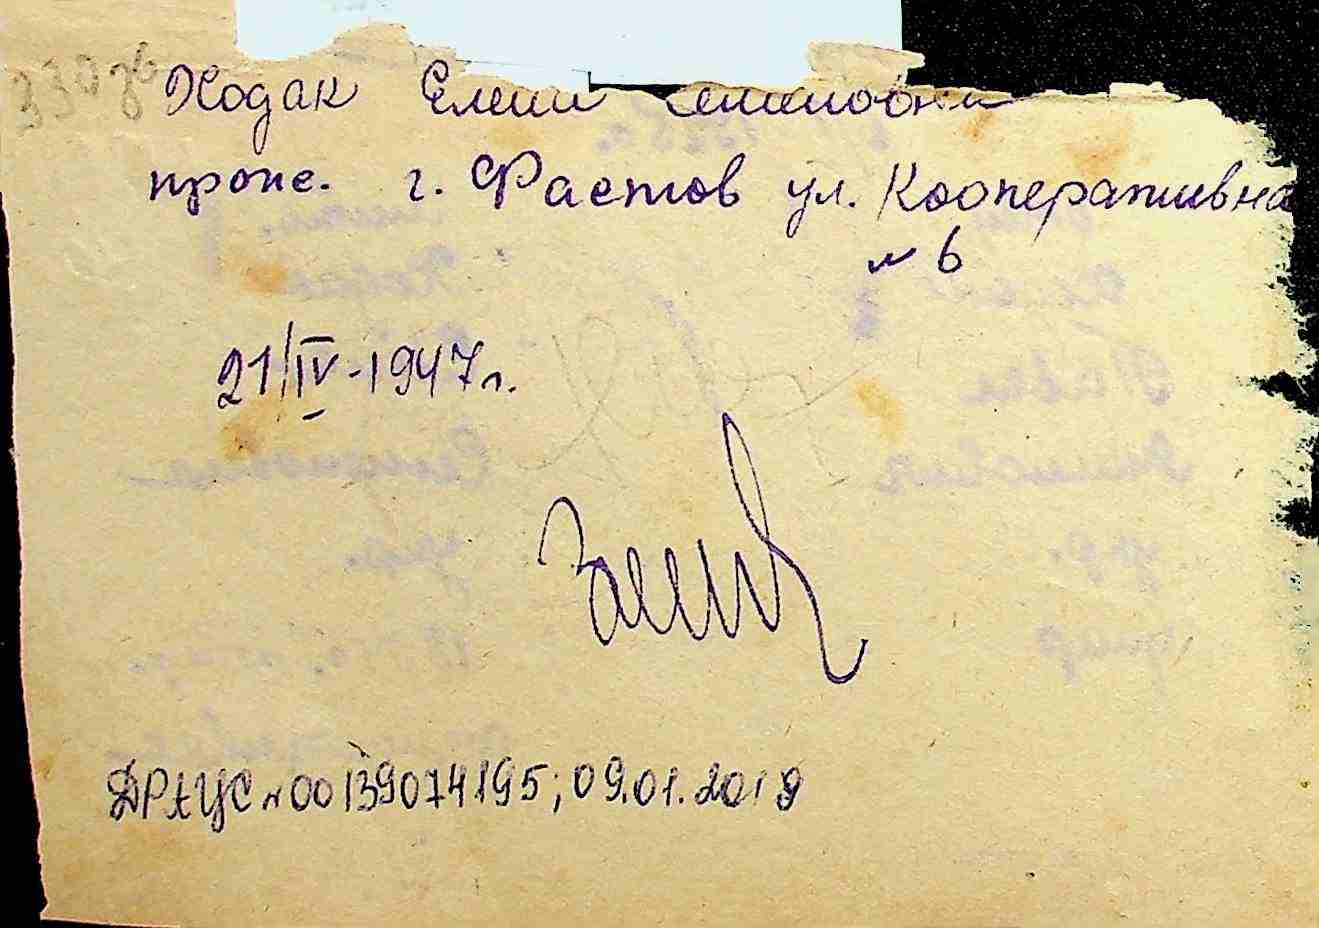 Ходак Елени Семеновни
прожс. г. Фастов ул. Кооперативна
№ 6
21/IV-1947г.
ДРАЦС №00139074195; 09.01.2019